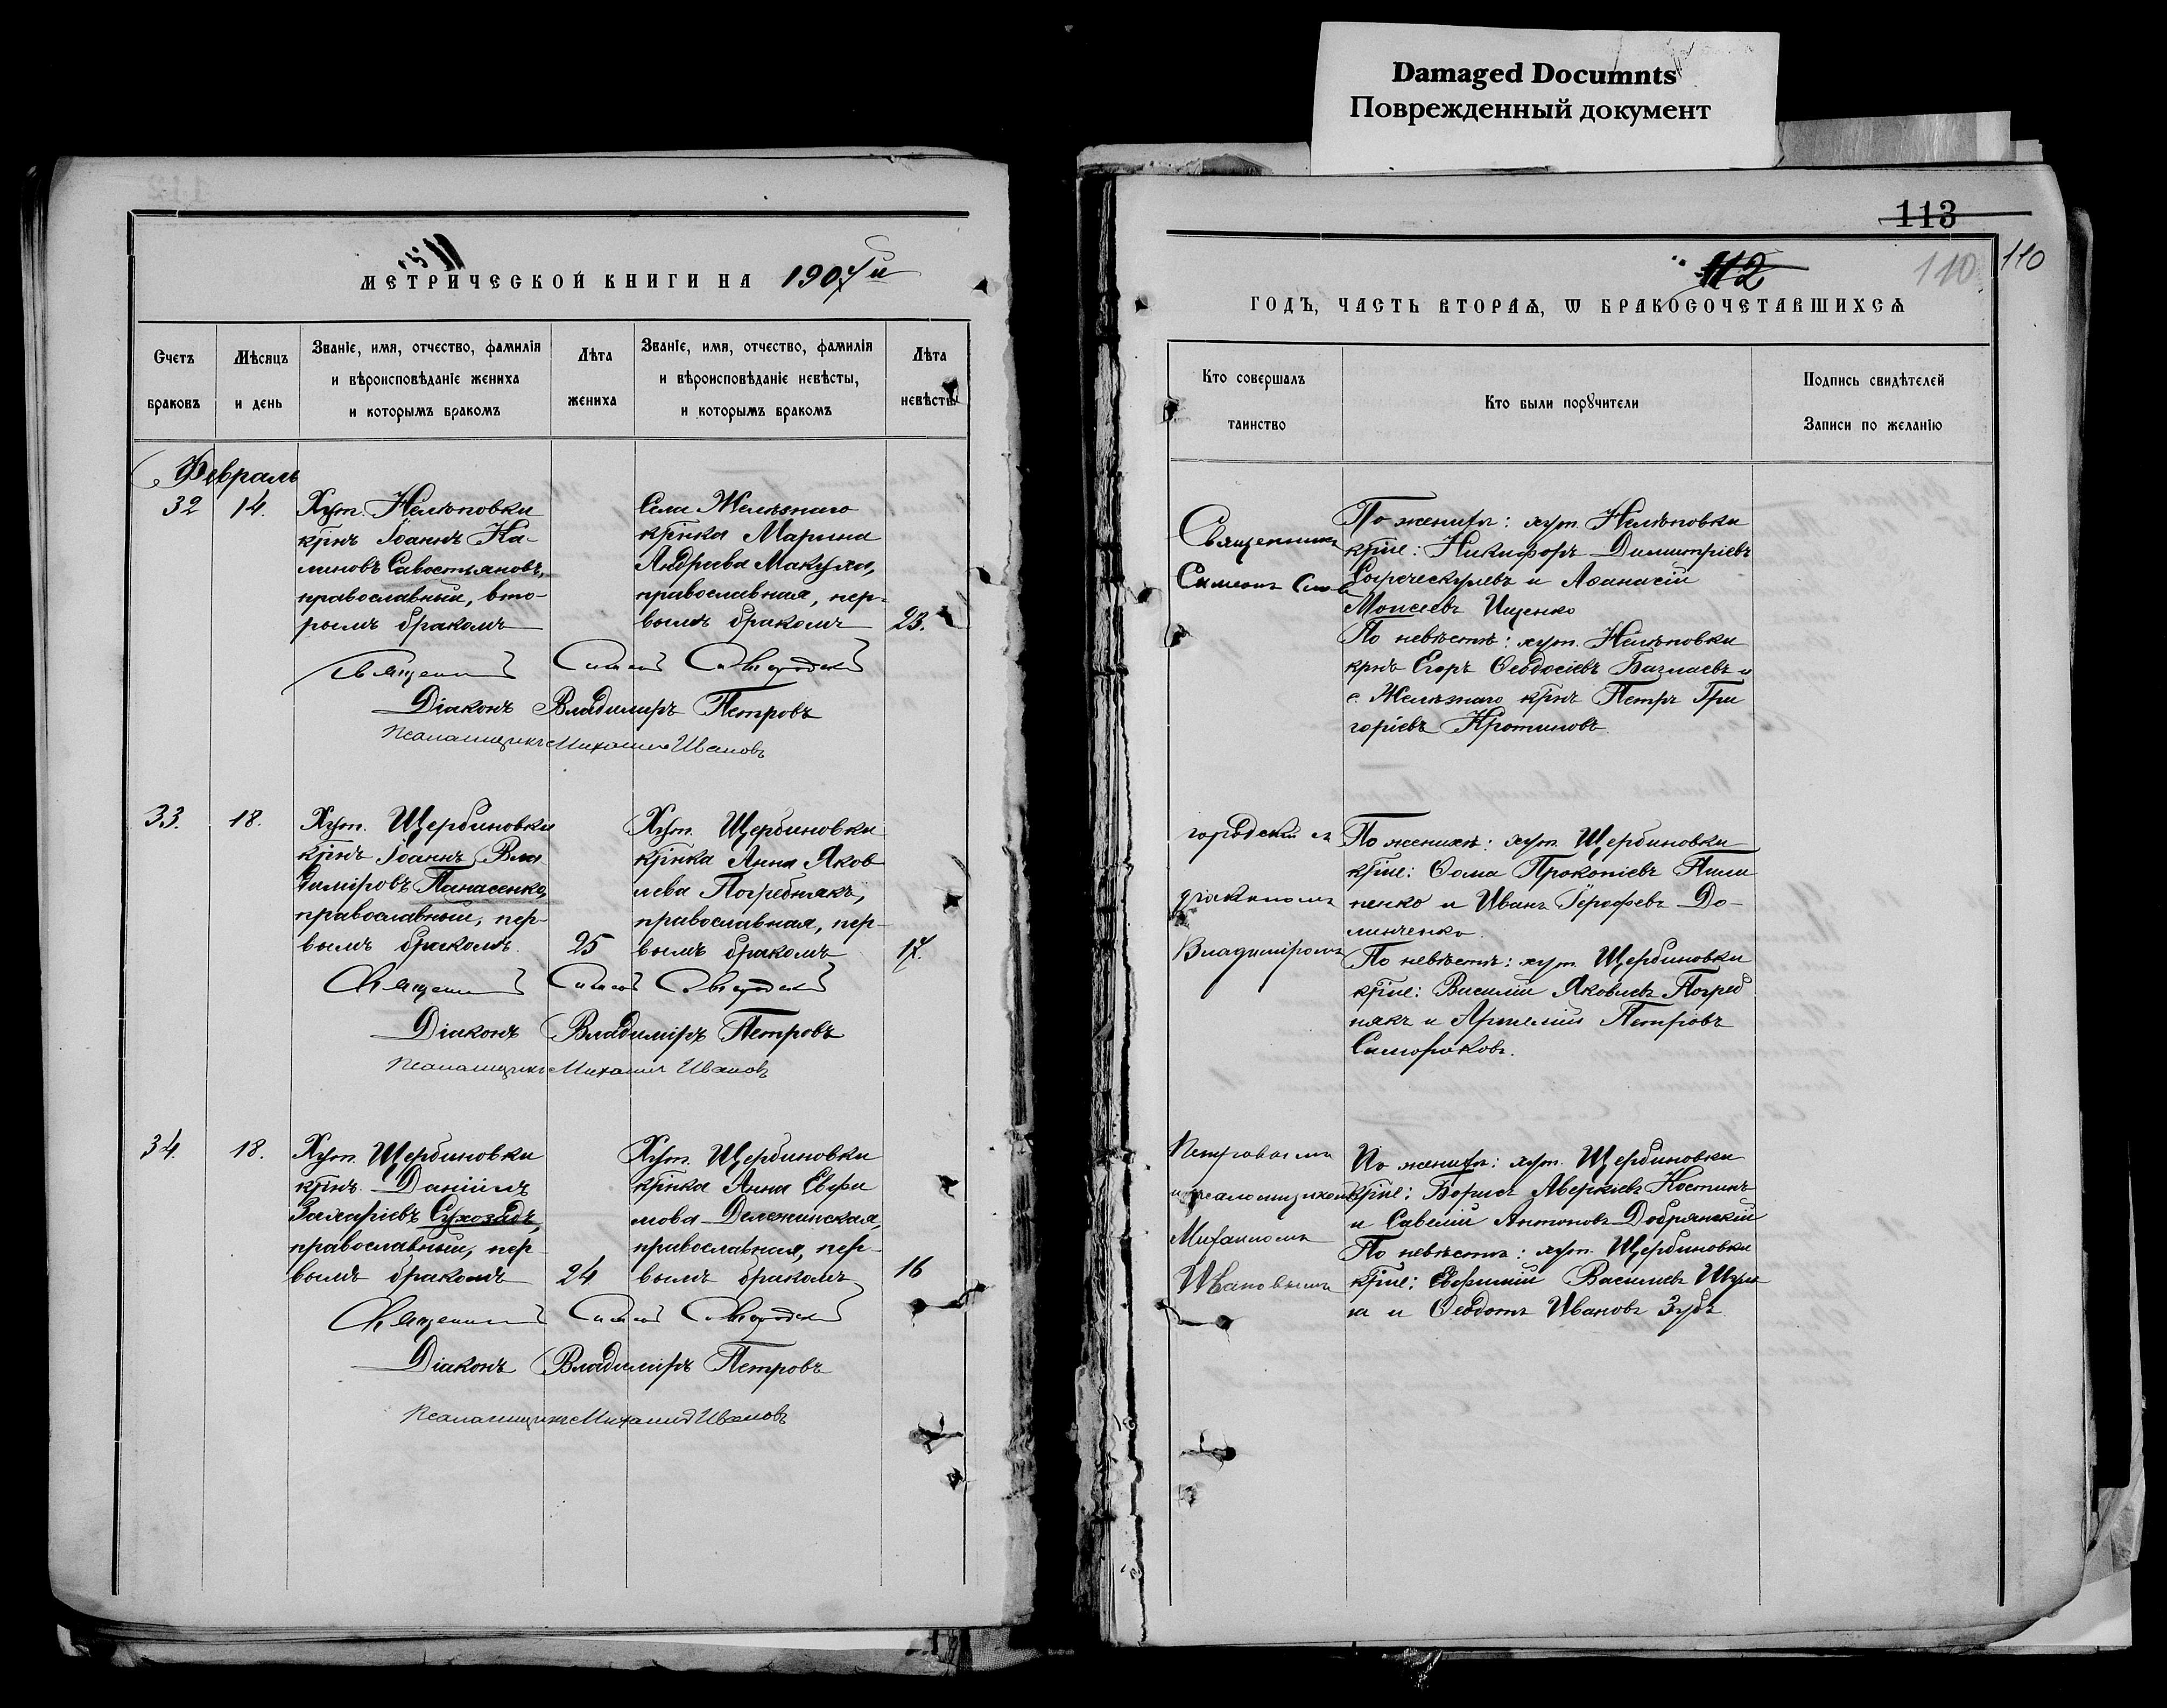 Damaged Documnts
Поврежденный документ
МЕТРИЧЕСКОЙ КНИГИ НА 1907 й
Счетъ браковъ
Мѣсяцъ и день
Званіе, имя, отчество, фамилія
и вѣроисповѣданіе жениха
и которымъ бракомъ
Лѣта жениха
Званіе, имя, отчество, фамилія
и вѣроисповѣданіе невѣсты,
и которымъ бракомъ
Лѣта невѣсты
Февраль
32
14.
Хут. Нелѣповки
крнъ Іоаннъ Ка-
линовъ Савостьяновъ,
православный, вто-
рымъ бракомъ
Села Желѣзнаго
крнка Марина
Андреева Макуха,
православная, пер-
вымъ бракомъ
23.
Священникъ Симеонъ
Діаконъ Владиміръ Петровъ
Псаломщикъ Михаилъ Ивановъ
33.
18.
Хут. Щербиновки
крнъ Іоаннъ Вла
диміровъ Панасенко,
православный, пер-
вымъ бракомъ
25
Хут. Щербиновки
крнка Анна Яков
лева Погребнякъ,
православная, пер-
вымъ бракомъ
17.
Священникъ Симеонъ
Діаконъ Владиміръ Петровъ
Псаломщикъ Михаилъ Ивановъ
34.
18.
Хут. Щербиновки
крнъ Даніилъ
Захаріевъ Сухозадъ,
православный, пер-
вымъ бракомъ
24
Хут. Щербиновки
крнка Анна Евфи
мова
православная, пер-
вымъ бракомъ
16
Священникъ Симеонъ
Діаконъ Владиміръ Петровъ
Псаломщикъ Михаилъ Ивановъ
113
112
110
110
ГОДЪ, ЧАСТЬ ВТОРАЯ, Ѡ БРАКОСОЧЕТАВШИХСЯ
Кто совершалъ таинство
Кто были порꙋчители
Подпись свидѣтелей
Записи по желанію
Священникъ
Симеонъ
По женихѣ: хут. Нелѣповки
крне: Никифоръ Димитріевъ
и Аѳанасій
Моисеевъ Ищенко
По невѣстѣ: хут. Нелѣповки
крнъ Егоръ Ѳеодосіевъ и
с. Желѣзнаго крнъ Петръ Гри
горіевъ
городскій съ
діакономъ
Владиміромъ
По женихѣ: хут. Щербиновки
крне: Ѳома Прокопіевъ Пили
пенко и Иванъ До-
линченко.
По невѣстѣ: хут. Щербиновки
крне: Василій Яковлевъ Погреб
някъ и Петровъ
Петровымъ
и псаломщикомъ
Михаиломъ
Ивановымъ
По женихѣ: хут. Щербиновки
крне: Борисъ Аверкіевъ Костинъ
и Савелій Антоновъ Добрянскій
По невѣстѣ: хут. Щербиновки
крне: Евфимій Васильевъ
и Ѳеодотъ Ивановъ Зубъ